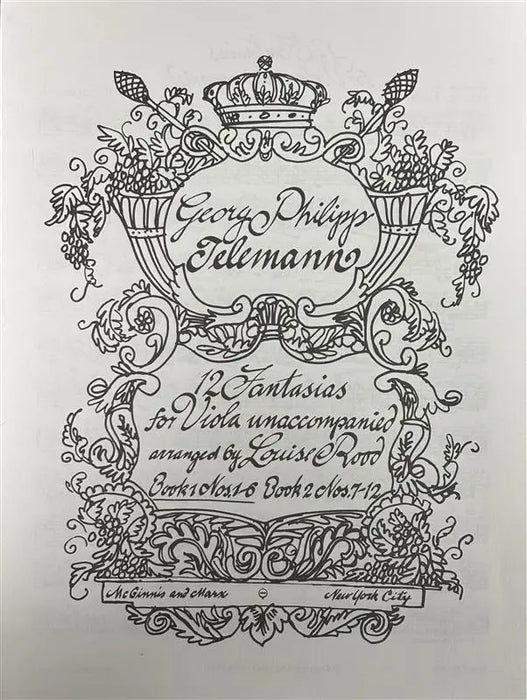 Georg Philipp
Telemann
12 Fantasias
for Viola unaccompanied
arranged by Louise Rood
Book 1 Nos 1-6 Book 2 Nos. 7-12
McGinnis and Marx New York City